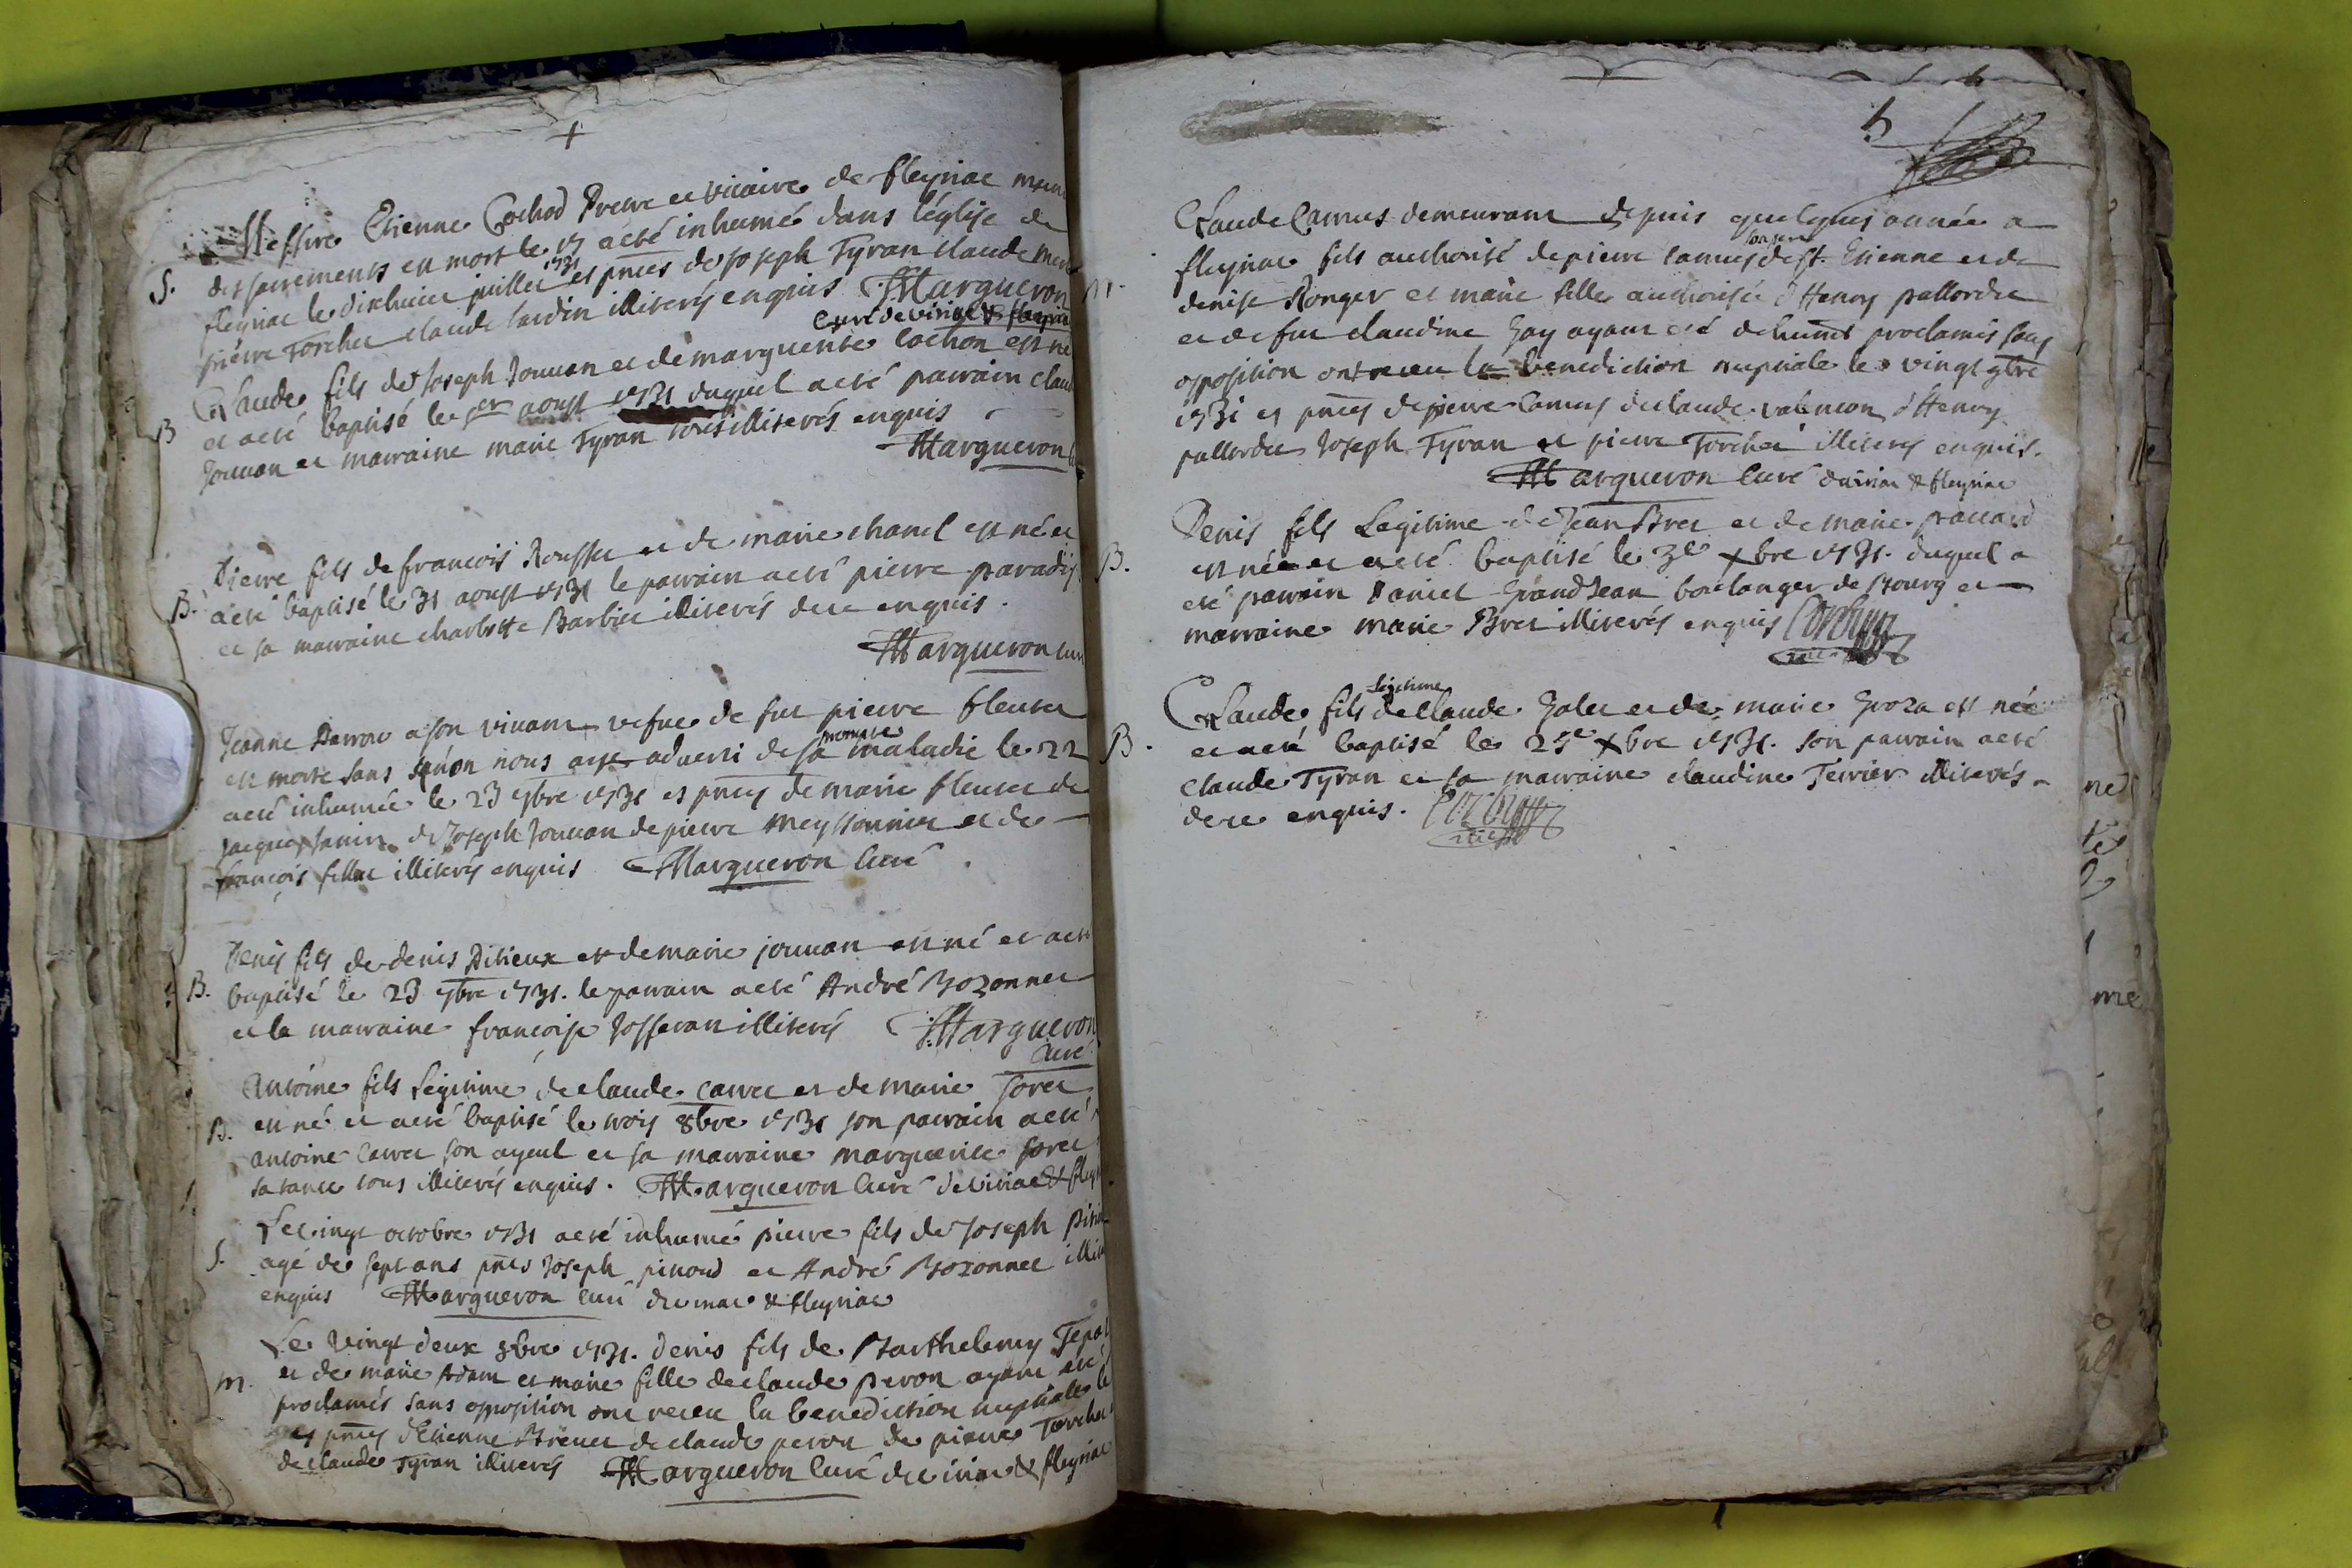 +
Messire Etienne Cochod Pretre et vicaire de fleyriac muni
S. des sacrements est mort le 17 a eté inhumé dans l'église de
fleyriac le dixhuict juillet 1731 es pnces de joseph Tyran claude
pierre Torchet claude Jardin illiterés enquis JMargueron
Curé de viriac & fleyriac
Claude fils de Joseph Jouvan et de marguerite Cochon est né
B et a eté baptisé le 1er aoust 1731 duquel a eté parrain claude
Jouvan et marraine marie Tyran tous illiterés enquis
JMargueron
Pierre fils de francois Rousset et de marie chanel est né et
B. a eté baptisé le 31 aoust 1731 le parrain a eté pierre paradis
et sa marraine charlotte Barbier illiterés de ce enquis.
JMargueron curé
Jeanne Darron a son vivant vefue de fut pierre fleuret
est morte sans qu'on nous aye adverti de sa maladie le 22
a eté inhumée le 23 7bre 1731 es pnces de marie fleuret de
jacques Janin de Joseph Jouvan de pierre Meyssonnier et de
françois fillet illiterés enquis Margueron Curé
Denis fils de denis Ditieux et de marie jouvan est né et a eté
B. baptisé le 23 7bre 1731. le parrain a eté André Bozonnet
et la marraine françoise Josseran illiterés JMargueron
Curé
Antoine fils legitime de claude carret et de marie Joret
B. est né et a eté baptisé le trois 8bre 1731 son parrain a eté
antoine Carret son ayeul et sa marraine marguerite Joret
sa tante tous illiterés enquis. JMargueron Curé de viriac & fley
Le vingt octobre 1731 a eté inhumé pierre fils de Joseph
S. agé de sept ans pnts Joseph pinoud et André Bozonnet illit
enquis JMargueron Curé de viriac & fleyriac
Le Vingt deux 8bre 1731. denis fils de Barthelemy
m. et de marie Adam et marie fille de claude peron ayant eté
proclamés sans opposition ont receu la benediction nuptiale le
es pnces d'Etienne Brevet de claude peron de pierre Torchet
de claude Tyran illiterés JMargueron Curé de viriac & fleyriac
5
Claude Camus demeurant depuis quelques année a
m. fleyriac fils authorisé de pierre camus son pere de st. Etienne et de
denise Ronger et marie fille authorisée d'Henry pallordet
et de fut claudine Gay ayant eté dehument proclamés sans
opposition ont receu la benediction nuptiale le vingt 9bre
1731 es pnces de pierre Camus de claude valencon d'Henry
pallordet Joseph Tyran et pierre Torchet illiterés enquis.
JMargueron Curé de viriac & fleyriac
Denis fils Legitime de Jean Bret et de marie
B. est née et a eté baptisé le 3e Xbre 1731. duquel a
eté parrain Daniel Grand Jean boulanger de Bourg et
marraine marie Bret illiterés enquis
Claude fils legitime de Claude Galet et de marie Groza est née
B. et a eté baptisé le 25e Xbre 1731. son parrain a eté
claude Tyran et sa marraine claudine Ferrier illiterés
de ce enquis.